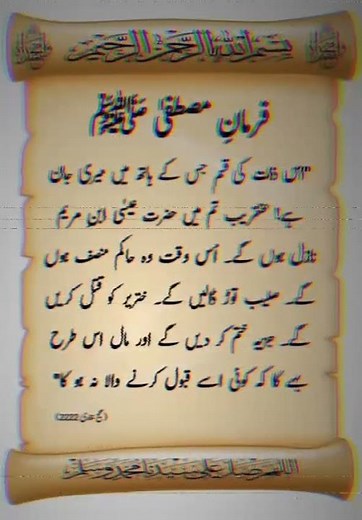 بسم الله الرحمن الرحیم
فرمانِ مصطفیٰ ﷺ
"اس ذات کی قسم جس کے ہاتھ میں میری جان
ہے! عنقریب تم میں حضرت عیسٰی ابنِ مریم
نازل ہوں گے۔ اُس وقت وہ حاکم منصف ہوں
گے۔ صلیب توڑ ڈالیں گے۔ خنزیر کو قتل کریں
گے۔ جزیہ ختم کر دیں گے اور مال اس طرح
بہے گا کہ کوئی اسے قبول کرنے والا نہ ہو گا"
(2222)
اللهم صل على سيدنا محمد وسلم